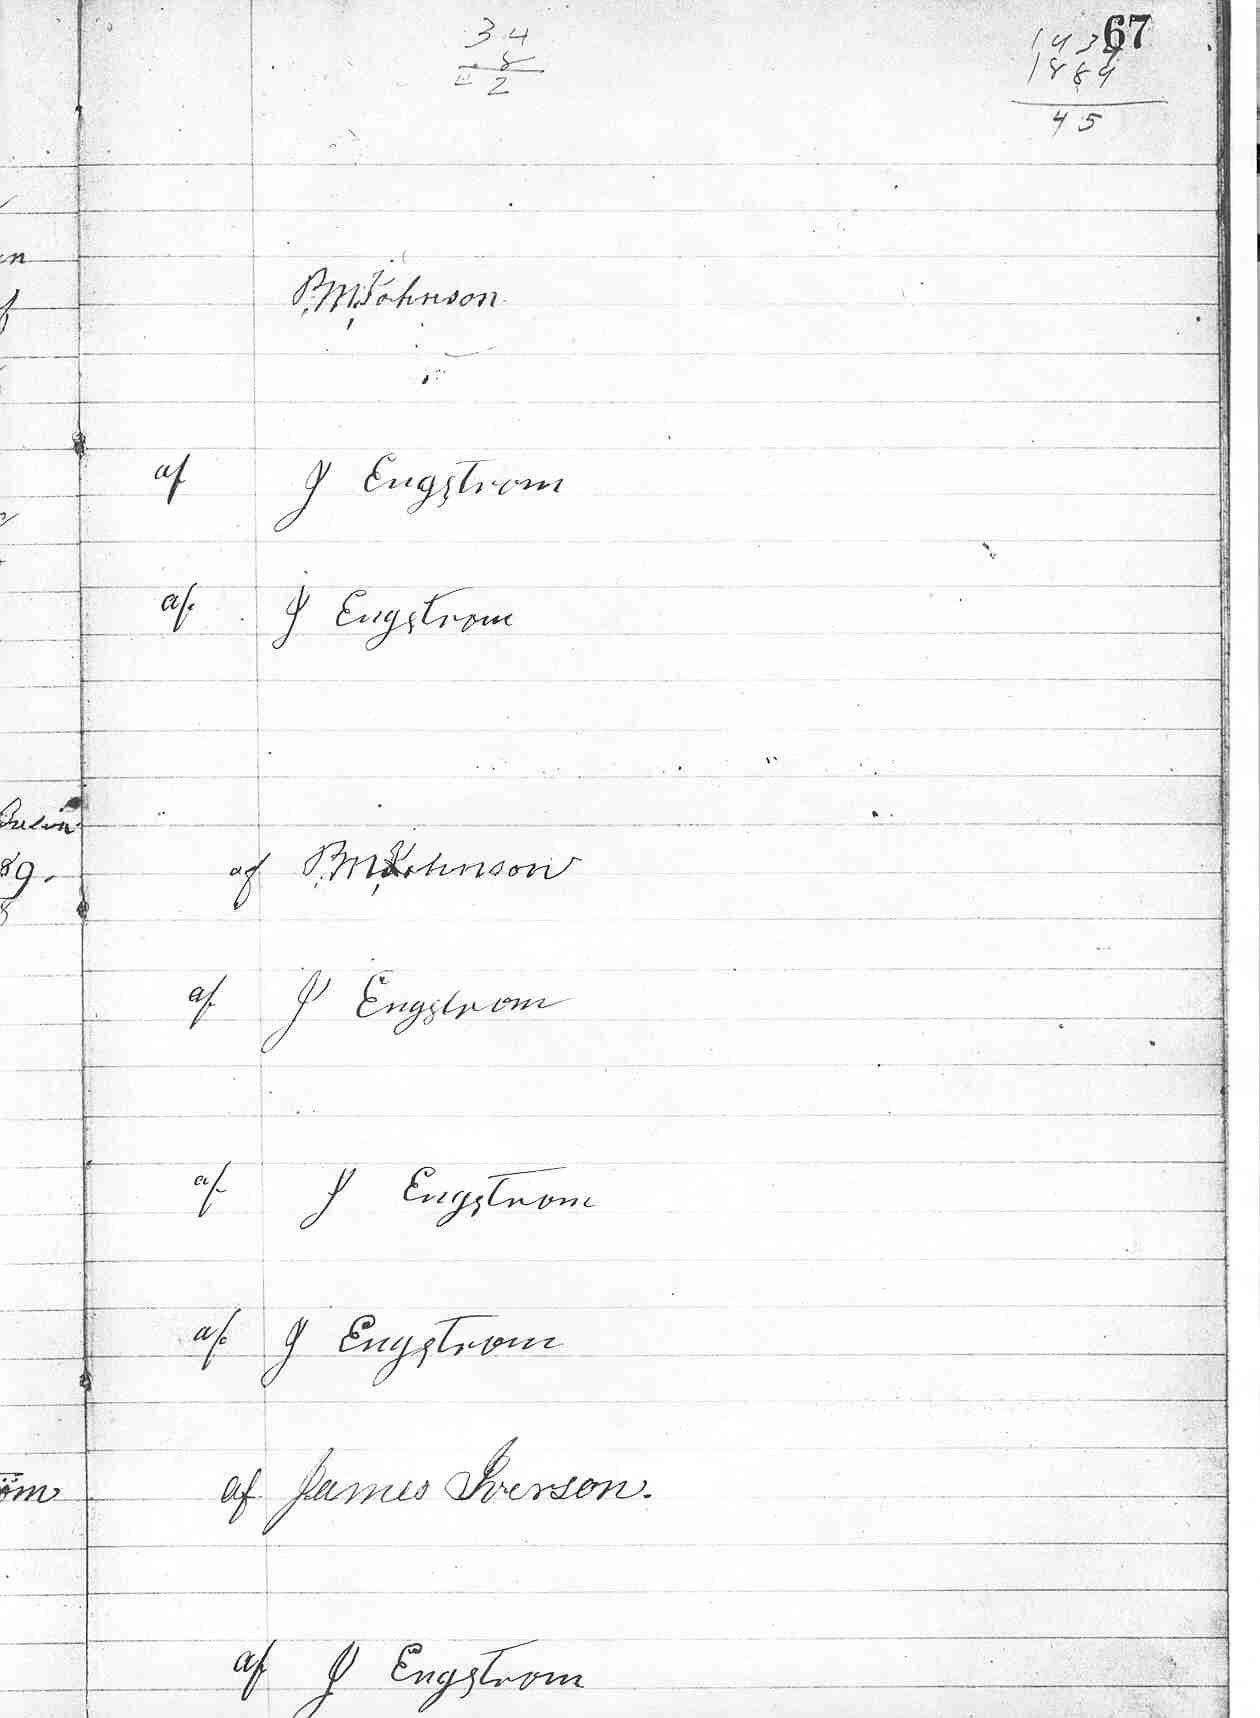 67
34
8
42
1934
1889
45
P.M. Johnson
af J Engstrom
af. J Engstrom
89.
af P.M. Johnson
af. J Engstrom
af. J Engstrom
af. J Engstrom
af James Iverson.
af J Engstrom